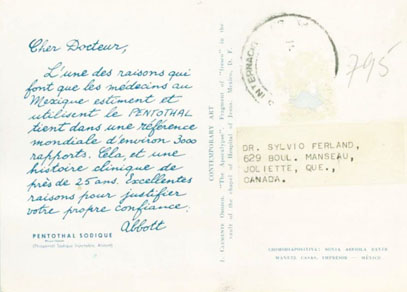 Cher Docteur,
L'une des raisons qui
font que les médecins au
Mexique estiment et
utilisent le PENTOTHAL
tient dans une référence
mondiale d'environ 3000
rapports. Cela, et une
histoire clinique de
près de 25 ans. Excellentes
raisons pour justifier
votre propre confiance.
Abbott
PENTOTHAL SODIQUE
CONTEMPORARY ART
"The Apocalypse". Fragment of "fresco" in the
vault of the chapel of Hospital of Jesus. Mexico, D. F.
INTERNAC
795
DR. SYLVIO FERLAND,
629 BOUL. MANSEAU,
JOLIETTE, QUE.,
CANADA.
MÉXICO